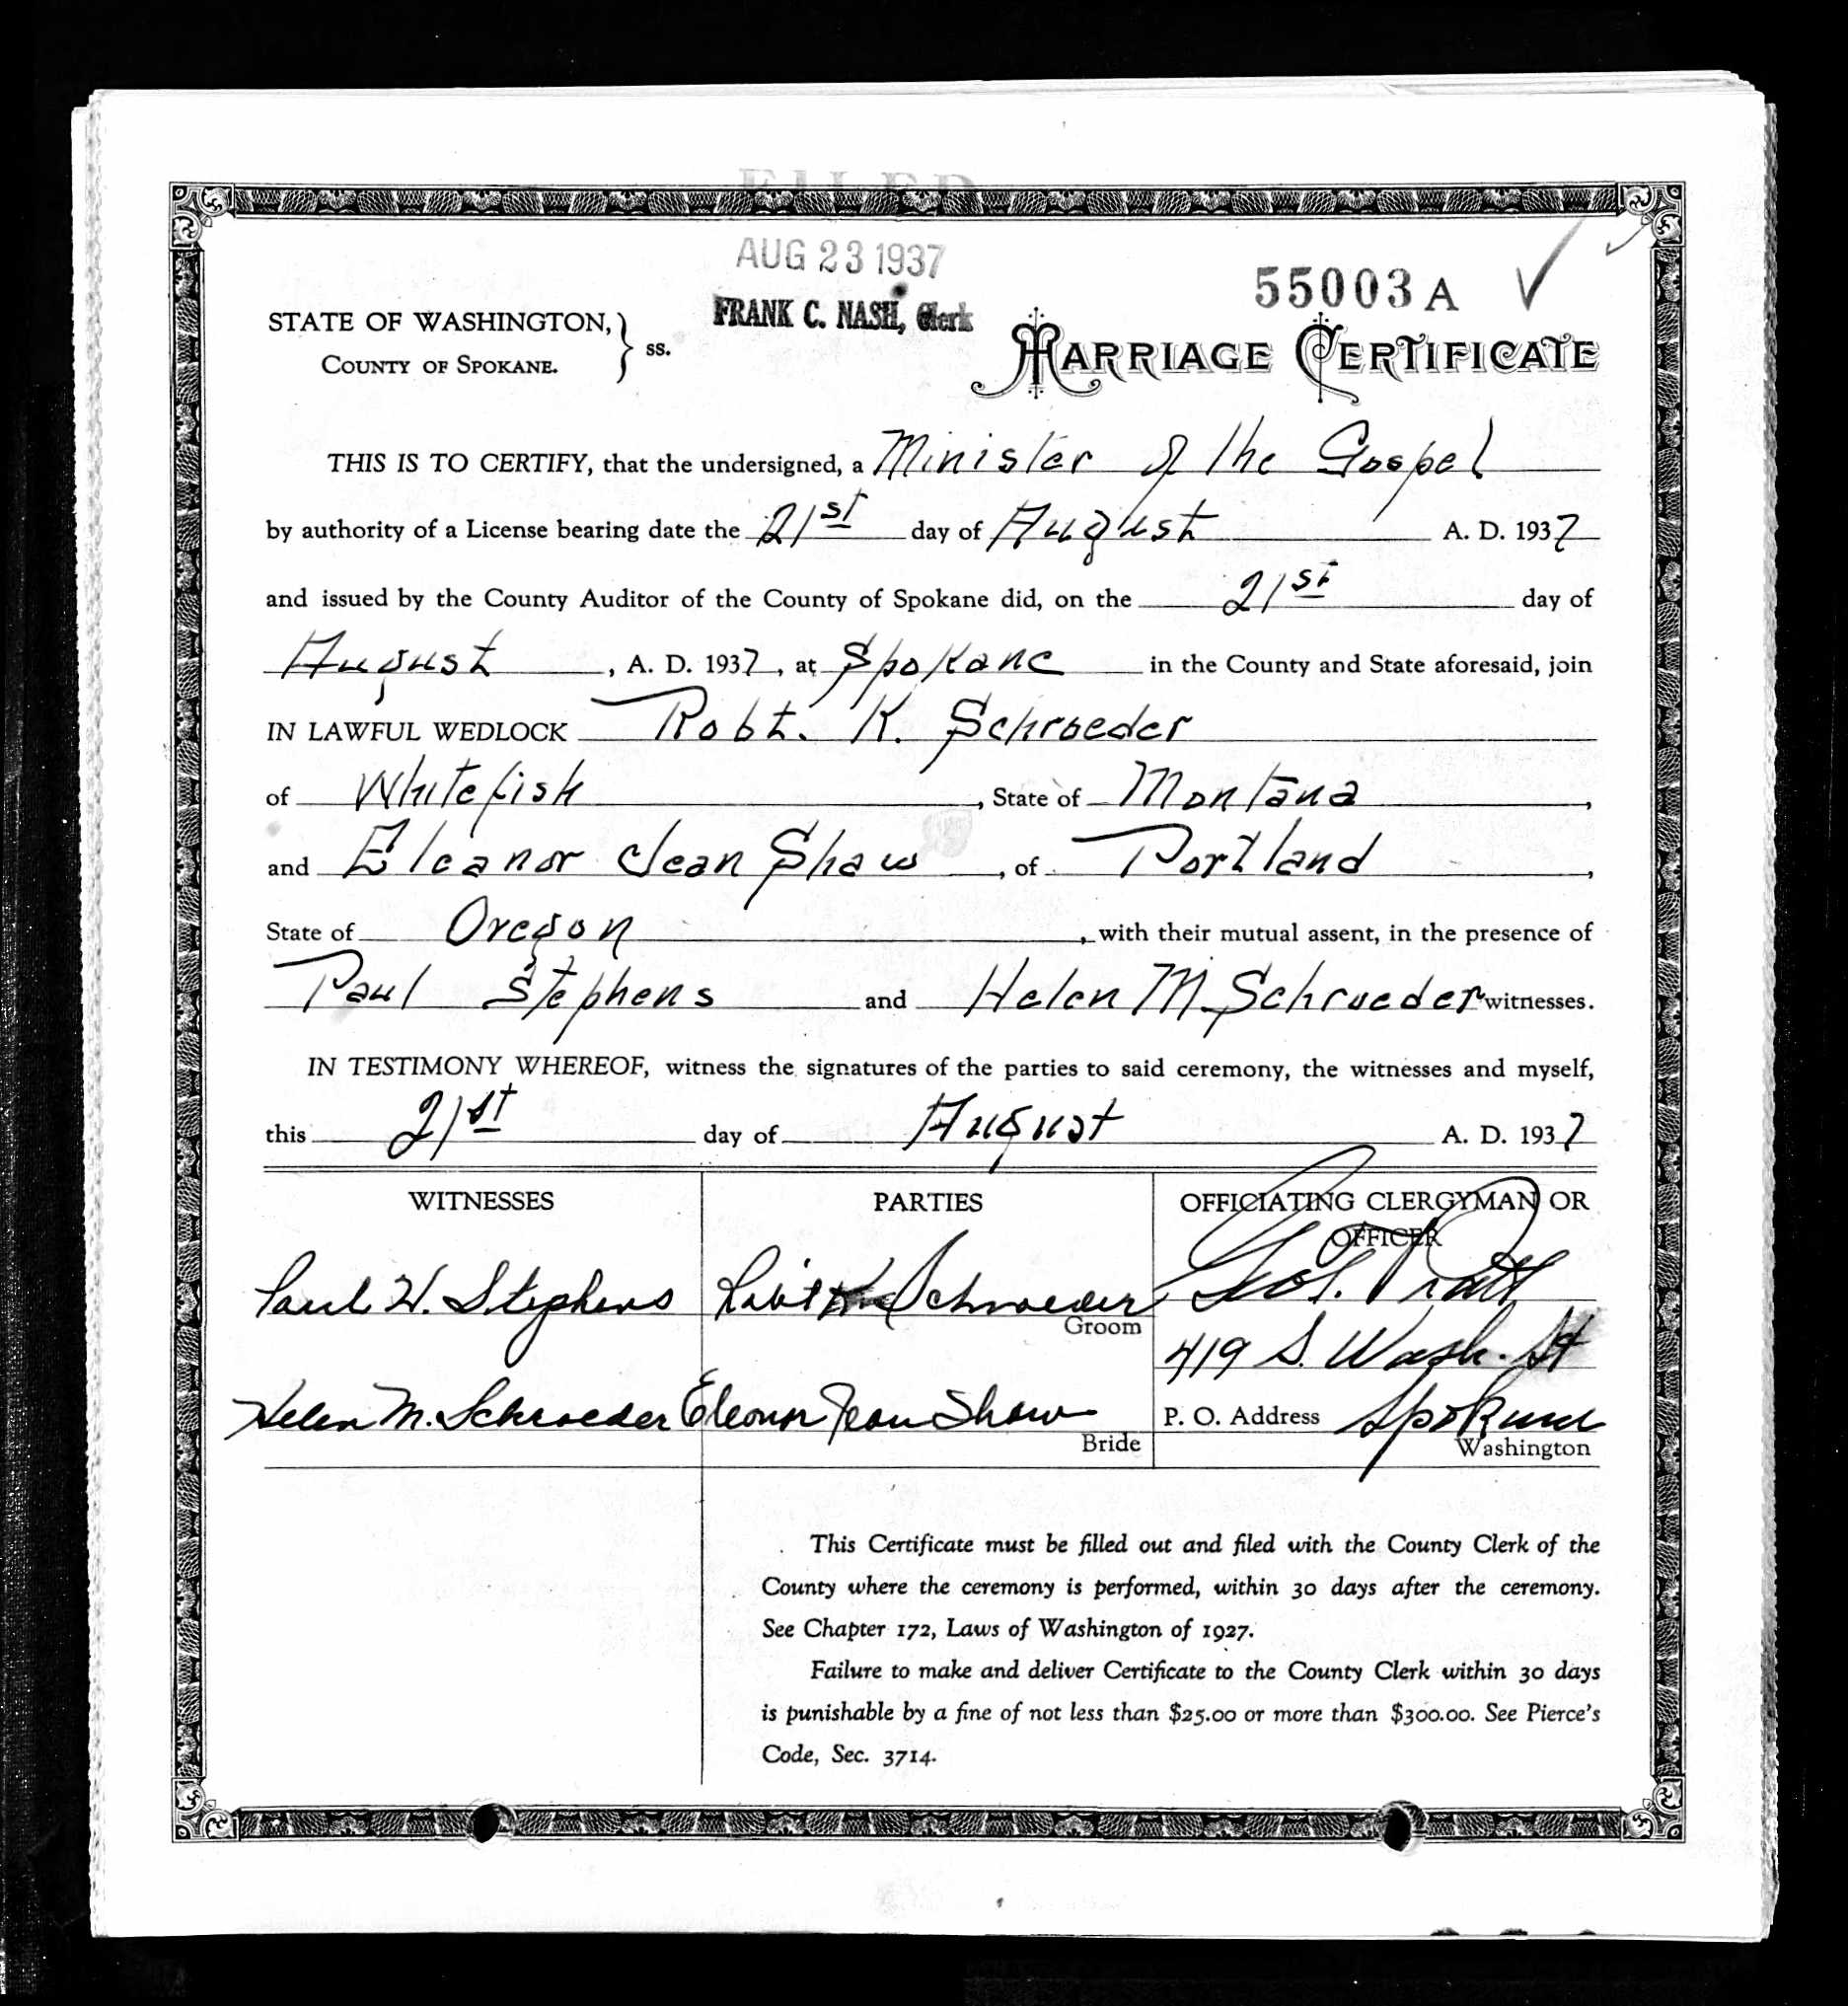 FILED
AUG 23 1937
FRANK C. NASH, Clerk
55003 A
STATE OF WASHINGTON, } ss.
COUNTY OF SPOKANE.
MARRIAGE CERTIFICATE
THIS IS TO CERTIFY, that the undersigned, a Minister of the Gospel
by authority of a License bearing date the 21st day of August A. D. 1937
and issued by the County Auditor of the County of Spokane did, on the 21st day of
August, A. D. 1937, at Spokane in the County and State aforesaid, join
IN LAWFUL WEDLOCK Robt. K. Schroeder
of Whitefish, State of Montana,
and Eleanor Jean Shaw, of Portland,
State of Oregon, with their mutual assent, in the presence of
Paul Stephens and Helen M. Schroeder witnesses.
IN TESTIMONY WHEREOF, witness the signatures of the parties to said ceremony, the witnesses and myself,
this 21st day of August A. D. 1937
WITNESSES PARTIES OFFICIATING CLERGYMAN OR
OFFICER
Paul W. Stephens Robt K. Schroeder Geo. Pratt
Groom
419 S. Wash. St
Helen M. Schroeder Eleanor Jean Shaw P. O. Address Spokane
Bride Washington
This Certificate must be filled out and filed with the County Clerk of the
County where the ceremony is performed, within 30 days after the ceremony.
See Chapter 172, Laws of Washington of 1927.
Failure to make and deliver Certificate to the County Clerk within 30 days
is punishable by a fine of not less than $25.00 or more than $300.00. See Pierce's
Code, Sec. 3714.